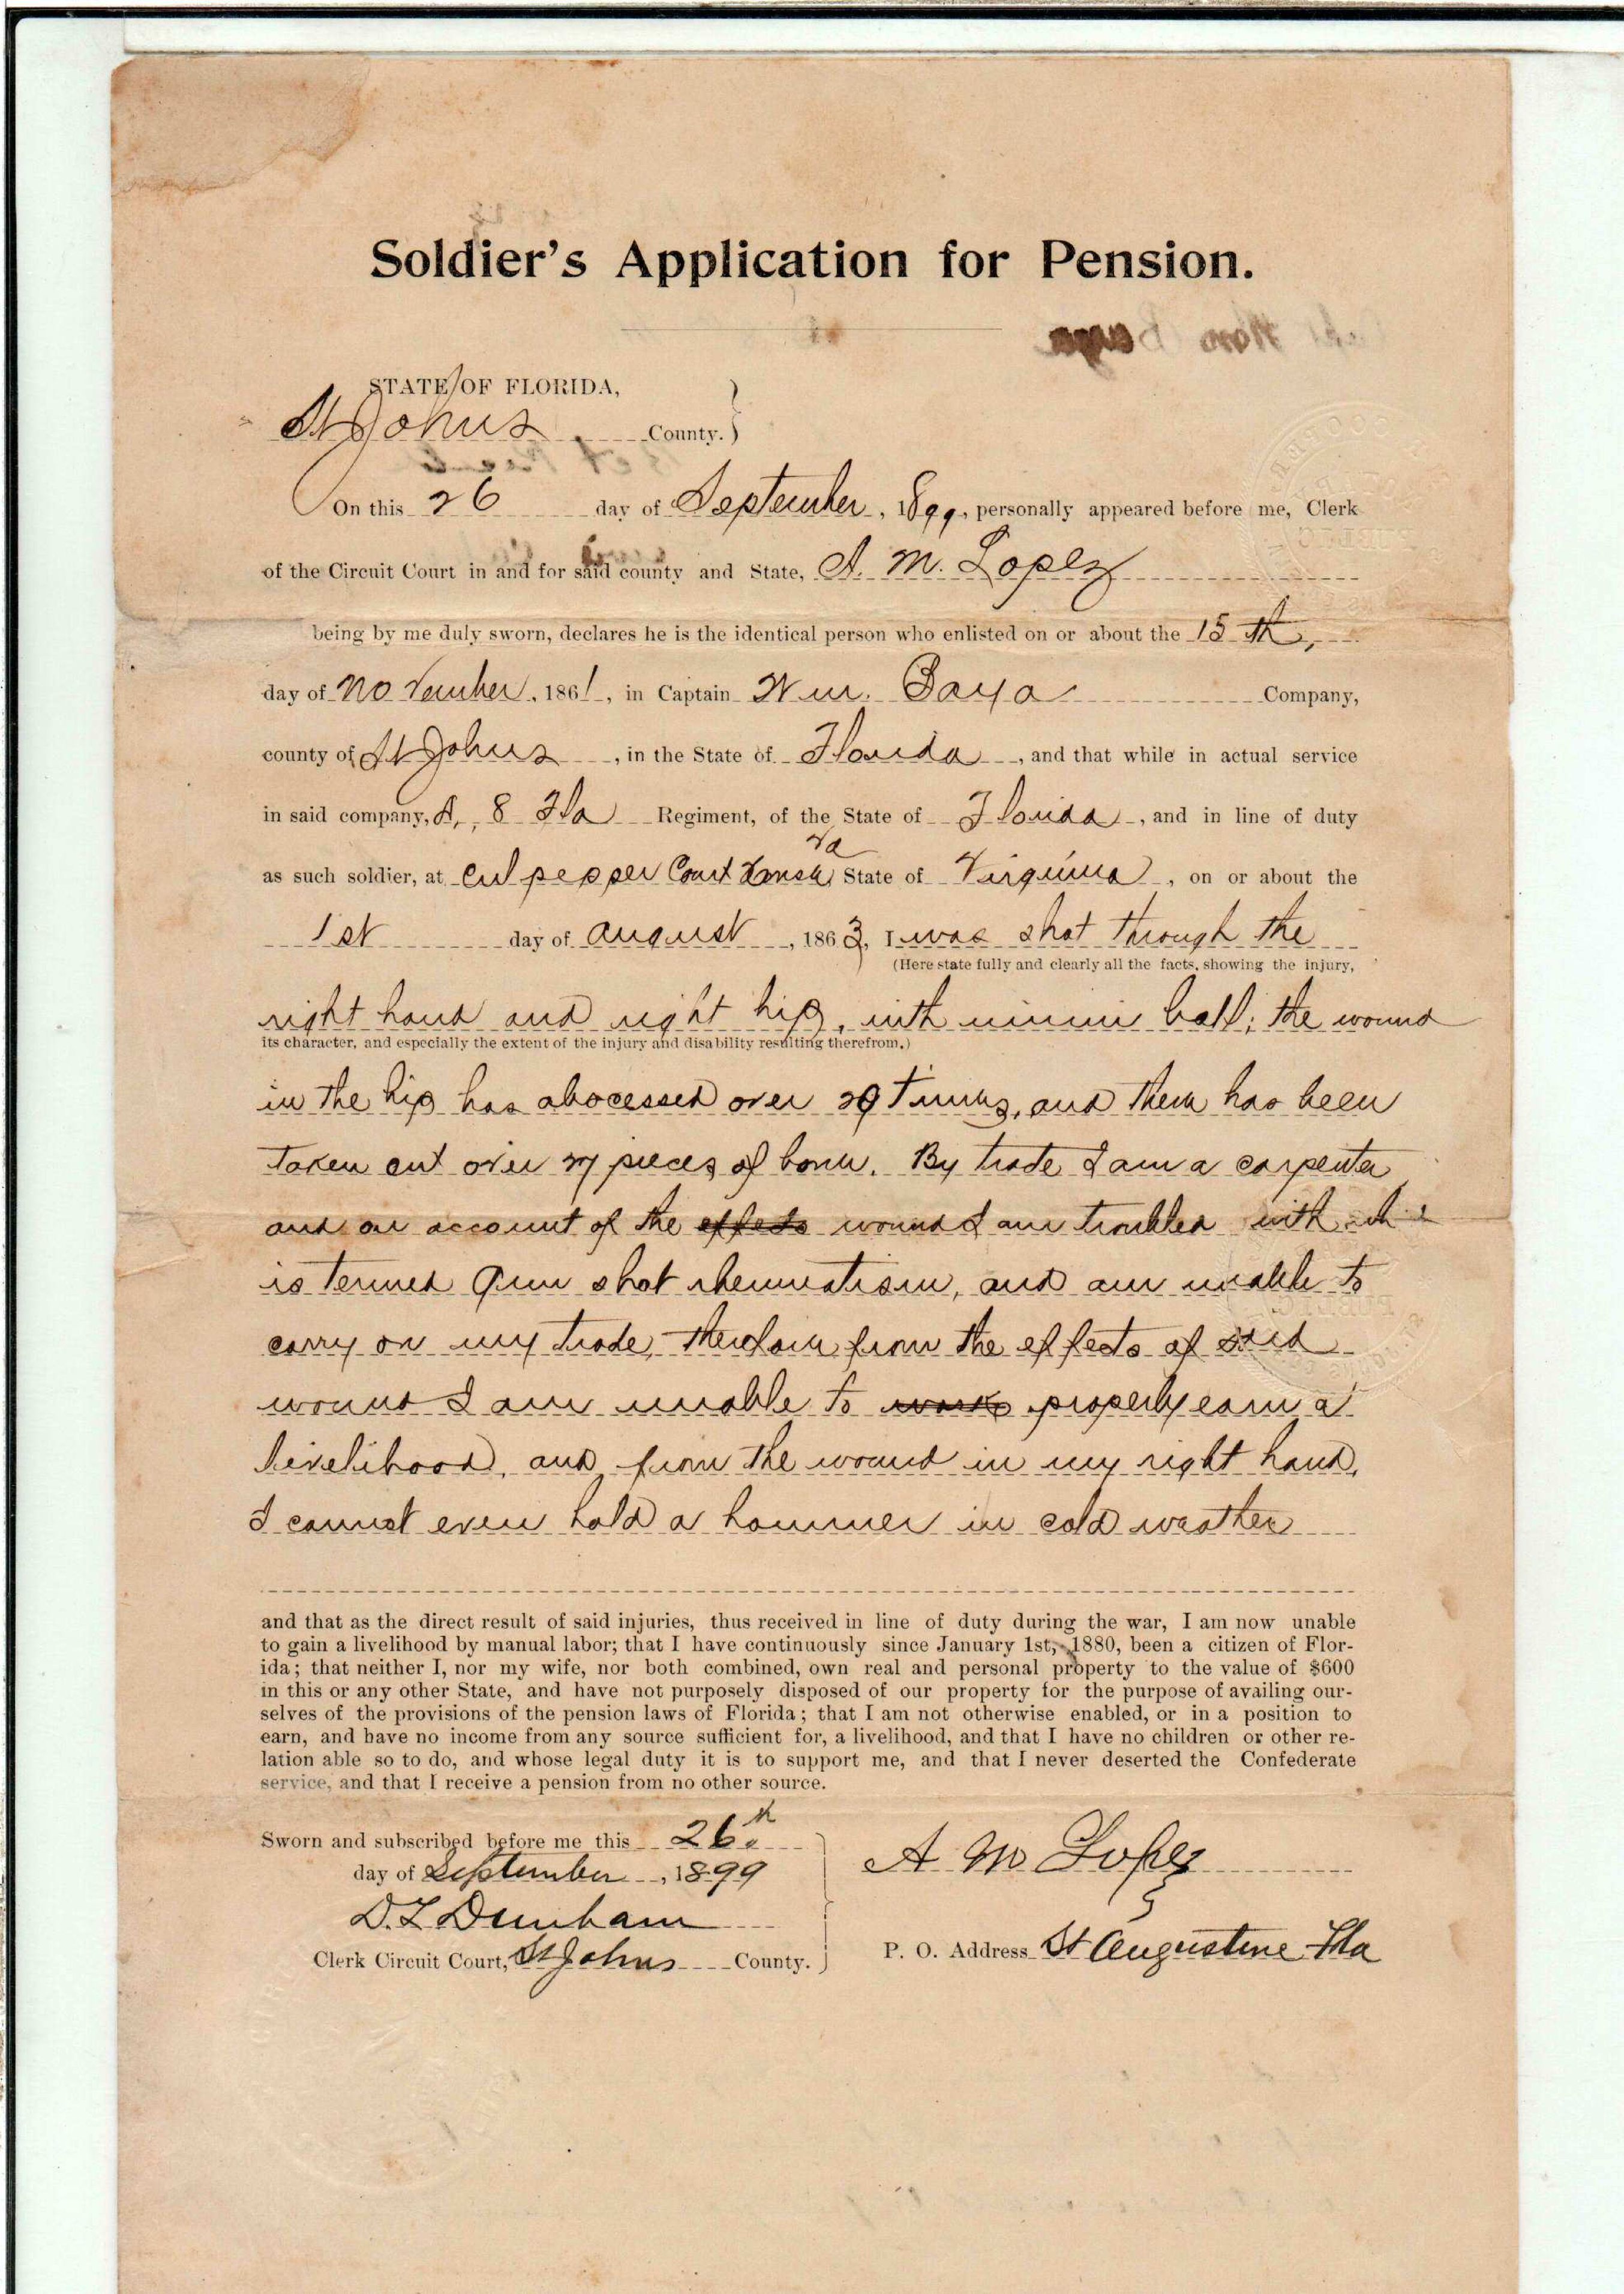 Soldier's Application for Pension.
STATE OF FLORIDA,
St Johns County.
On this 26 day of September, 1899, personally appeared before me, Clerk
of the Circuit Court in and for said county and State, A. M. Lopez
being by me duly sworn, declares he is the identical person who enlisted on or about the 15th,
day of November, 1861, in Captain Wm. Baya Company,
county of St Johns, in the State of Florida, and that while in actual service
in said company, A, 8 Fla Regiment, of the State of Florida, and in line of duty
Va
as such soldier, at Culpepper Court House State of Virginia, on or about the
1st day of August, 1863, I was shot through the
(Here state fully and clearly all the facts, showing the injury,
right hand and right hip, with minni ball; the wound
its character, and especially the extent of the injury and disability resulting therefrom.)
in the hip has abocessed over 29 times, and there has been
taken out over 27 pieces of bone. By trade I am a carpenter
and on account of the effects wound I am troubled with
is termed Gun shot rheumatism, and am unable to
carry on my trade, therefore from the effects of said
wound I am unable to work properly earn a
livelihood, and from the wound in my right hand,
I cannot even hold a hammer in cold weather
and that as the direct result of said injuries, thus received in line of duty during the war, I am now unable
to gain a livelihood by manual labor; that I have continuously since January 1st, 1880, been a citizen of Flor-
ida; that neither I, nor my wife, nor both combined, own real and personal property to the value of $600
in this or any other State, and have not purposely disposed of our property for the purpose of availing our-
selves of the provisions of the pension laws of Florida; that I am not otherwise enabled, or in a position to
earn, and have no income from any source sufficient for, a livelihood, and that I have no children or other re-
lation able so to do, and whose legal duty it is to support me, and that I never deserted the Confederate
service, and that I receive a pension from no other source.
Sworn and subscribed before me this 26th
day of September, 1899
D. L Dunham
Clerk Circuit Court, St Johns County.
A M Lopez
P. O. Address St Augustine Fla